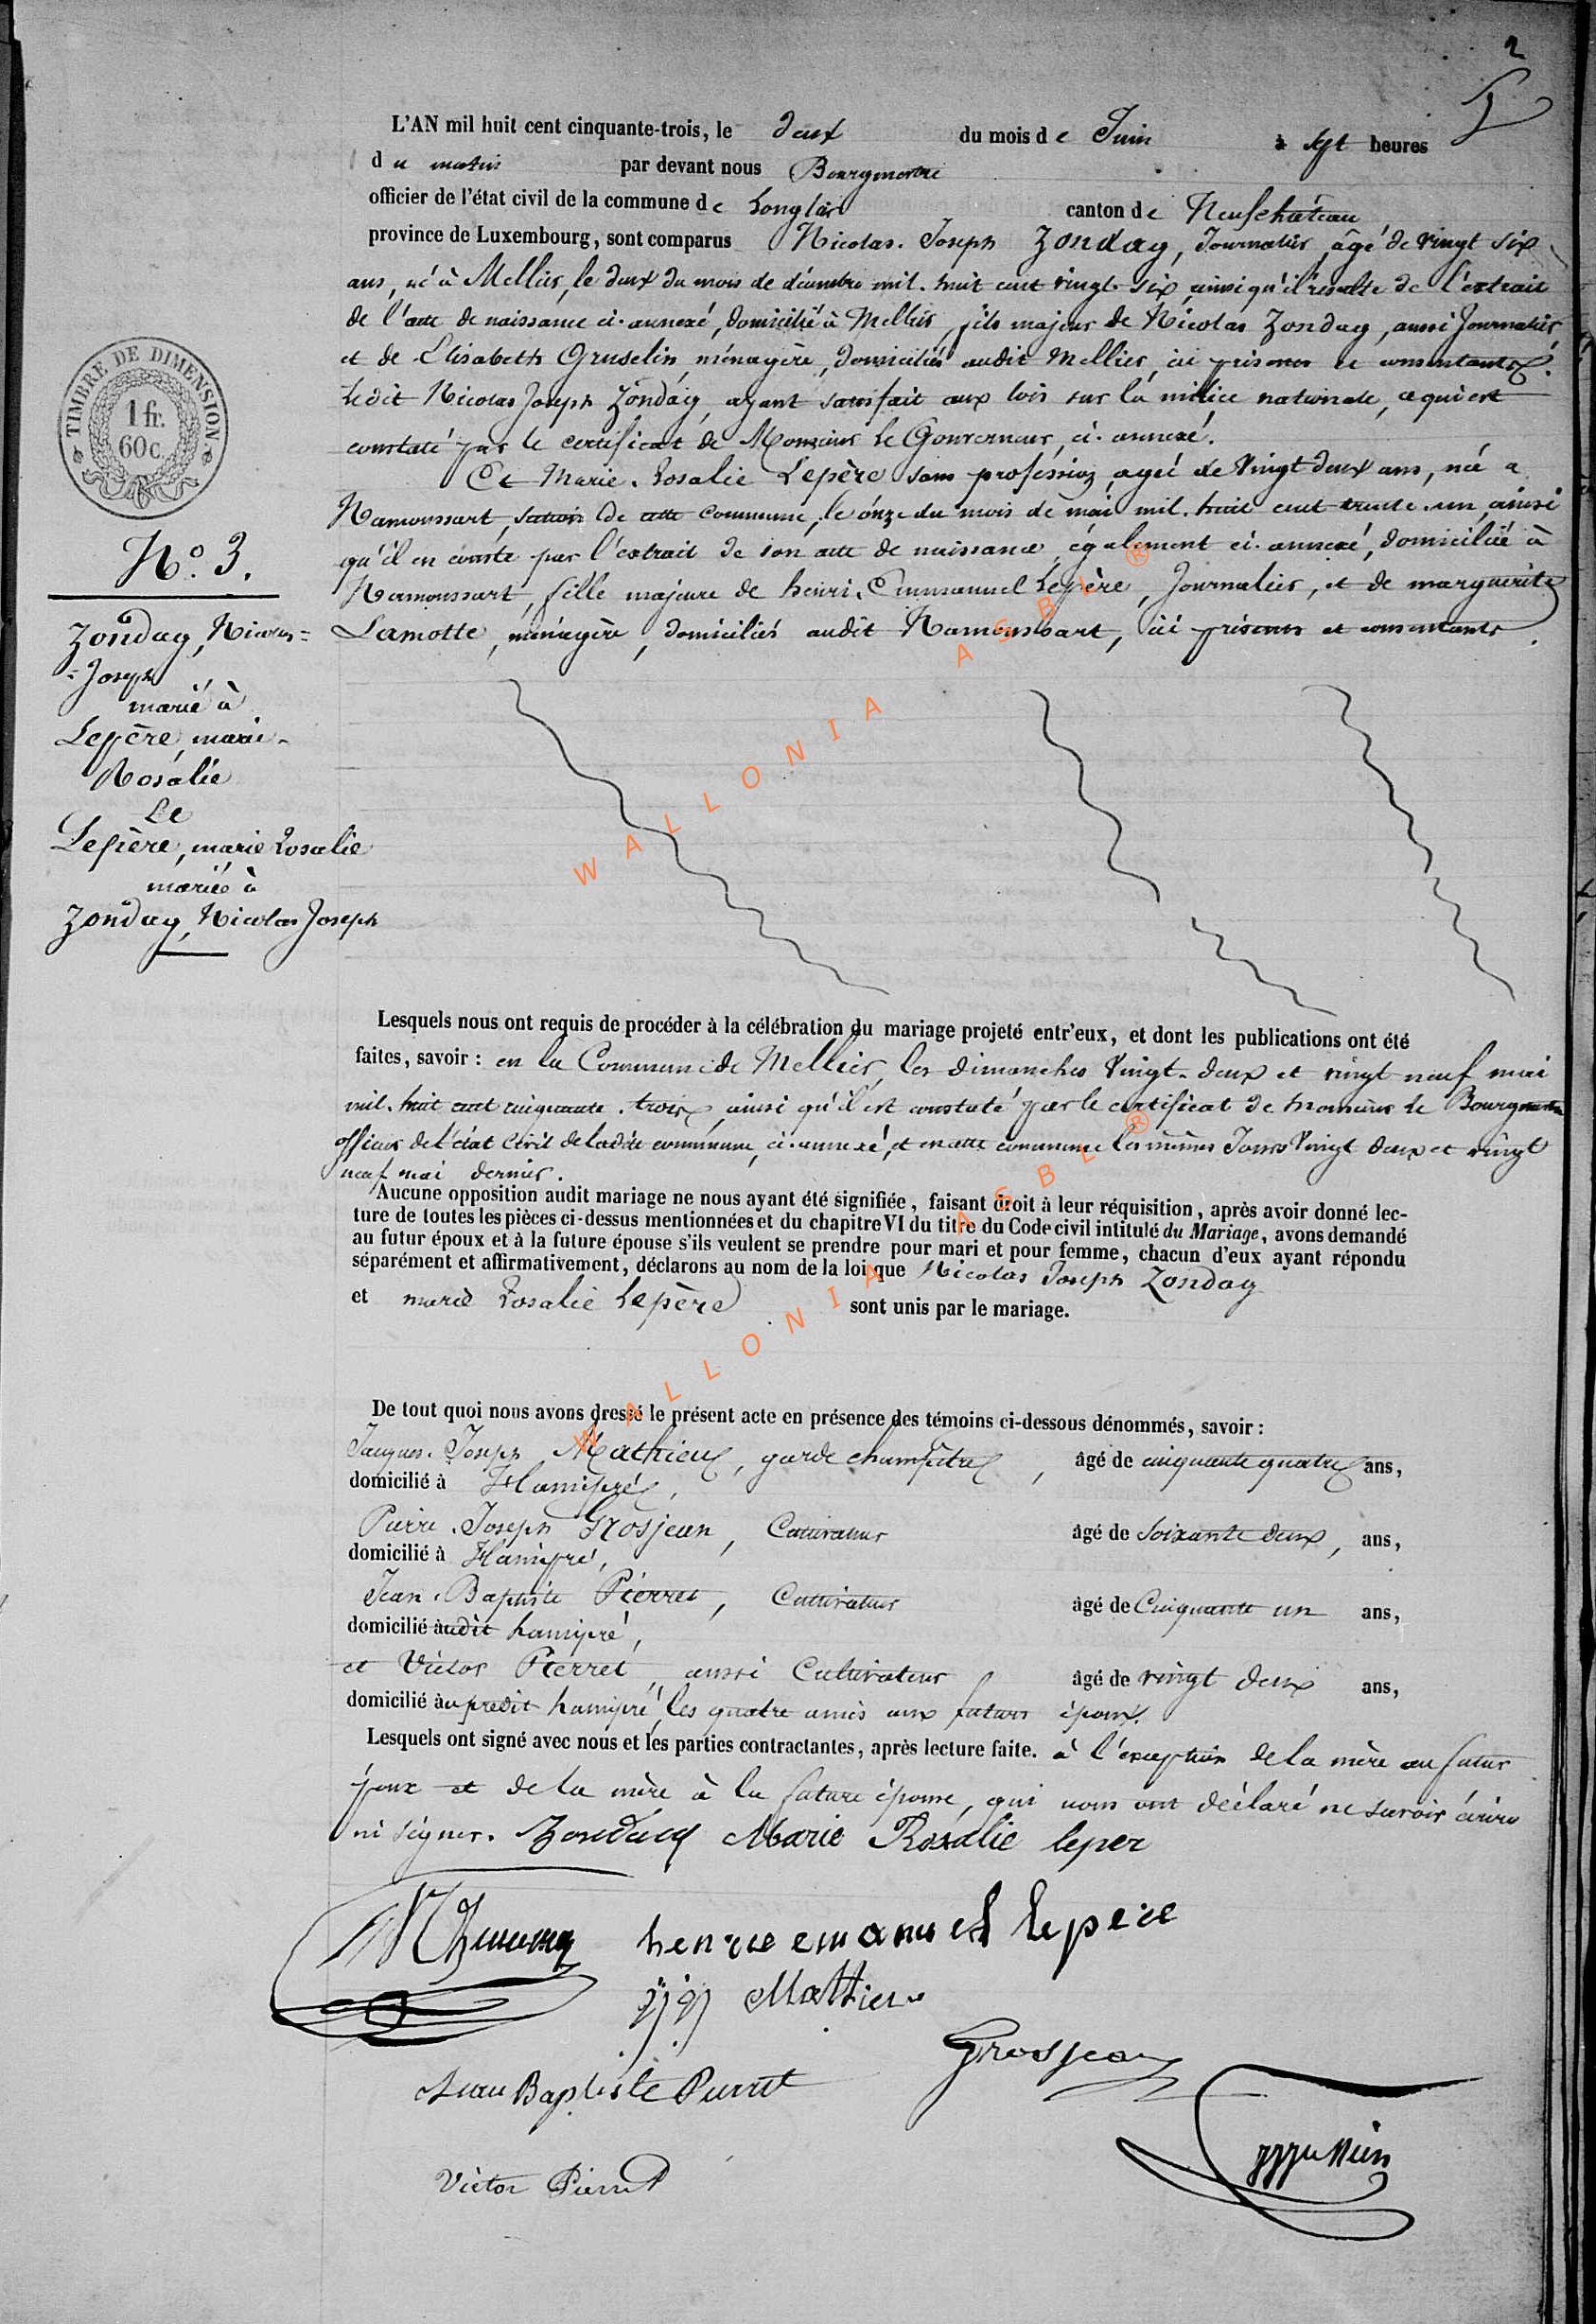 2
L'AN mil huit cent cinquante-trois, le deux du mois de Juin à sept heures
du matin par devant nous Bourgmestre
officier de l'état civil de la commune de Longlier canton de Neufchâteau
province de Luxembourg, sont comparus Nicolas. Joseph Zonday, Journalier, âgé de vingt six
ans, né à Mellier, le deux du mois de décembre mil. huit cent vingt. six, ainsi qu'il résulte de l'extrait
de l'acte de naissance ci-annexé, domicilié à Mellier, fils majeur de Nicolas Zonday, aussi Journalier,
et de Elisabeth Gruselin, ménagère, domiciliés audit Mellier, ici présents et consentants.
Ledit Nicolas Joseph Zonday, ayant satisfait aux lois sur la milice nationale, ce qui est
constaté par le certificat de Monsieur le Gouverneur, ci-annexé.
Et Marie. Rosalie Lepère sans profession, agée de vingt deux ans, née a
Namoussart, section de cette commune, le onze du mois de mai mil. huit cent trente. un, ainsi
qu'il en conste par l'extrait de son acte de naissance, également ci-annexé, domiciliée à
Namoussart, fille majeure de henri. Emmanuel Lepère, Journalier, et de marguerite
Lamotte, ménagère, domiciliés audit Namoussart, ici présents et consentants.
TIMBRE DE DIMENSION
1 fr.
60c
N.º 3.
Zonday, Nicolas=
=Joseph
marié à
Lepère, marie-
Rosalie
Le
Lepère, marie Rosalie
mariée à
Zonday, Nicolas Joseph
Lesquels nous ont requis de procéder à la célébration du mariage projeté entr'eux, et dont les publications ont été
faites, savoir : en la Commune de Mellier, les dimanches vingt-deux et vingt neuf mai
mil. huit cent cinquante. trois, ainsi qu'il est constaté par le certificat de monsieur le Bourgmestre
officier de l'état civil de ladite commune, ci-annexé, et en cette commune les mêmes Jours vingt deux et vingt
neuf mai dernier.
Aucune opposition audit mariage ne nous ayant été signifiée, faisant droit à leur réquisition, après avoir donné lec-
ture de toutes les pièces ci-dessus mentionnées et du chapitre VI du titre du Code civil intitulé du Mariage, avons demandé
au futur époux et à la future épouse s'ils veulent se prendre pour mari et pour femme, chacun d'eux ayant répondu
séparément et affirmativement, déclarons au nom de la loi que Nicolas Joseph Zonday
et marie Rosalie Lepère sont unis par le mariage.
De tout quoi nous avons dressé le présent acte en présence des témoins ci-dessous dénommés, savoir :
Jacques. Joseph Mathieu, garde champêtre, âgé de cinquante quatre ans,
domicilié à Hamipré,
Pierre. Joseph Grosjean, Cultivateur âgé de soixante deux, ans,
domicilié à Hamipré,
Jean. Baptiste Pierret, Cultivateur âgé de Cinquante un ans,
domicilié audit hamipré,
et Victor Pierret, aussi Cultivateur âgé de vingt deux ans,
domicilié au predit hamipré, les quatre amis aux futurs époux.
Lesquels ont signé avec nous et les parties contractantes, après lecture faite. à l'exception de la mère au futur
époux et de la mère à la future épouse, qui nous ont déclaré ne savoir écrire
ni signer. Zonday Marie Rosalie leper
henrie emanuel lepere
jj Mathieu
Grosjean
Jean Baptiste Pierret
Victor Pierret
WALLONIA ASBL ®
WALLONIA ASBL ®